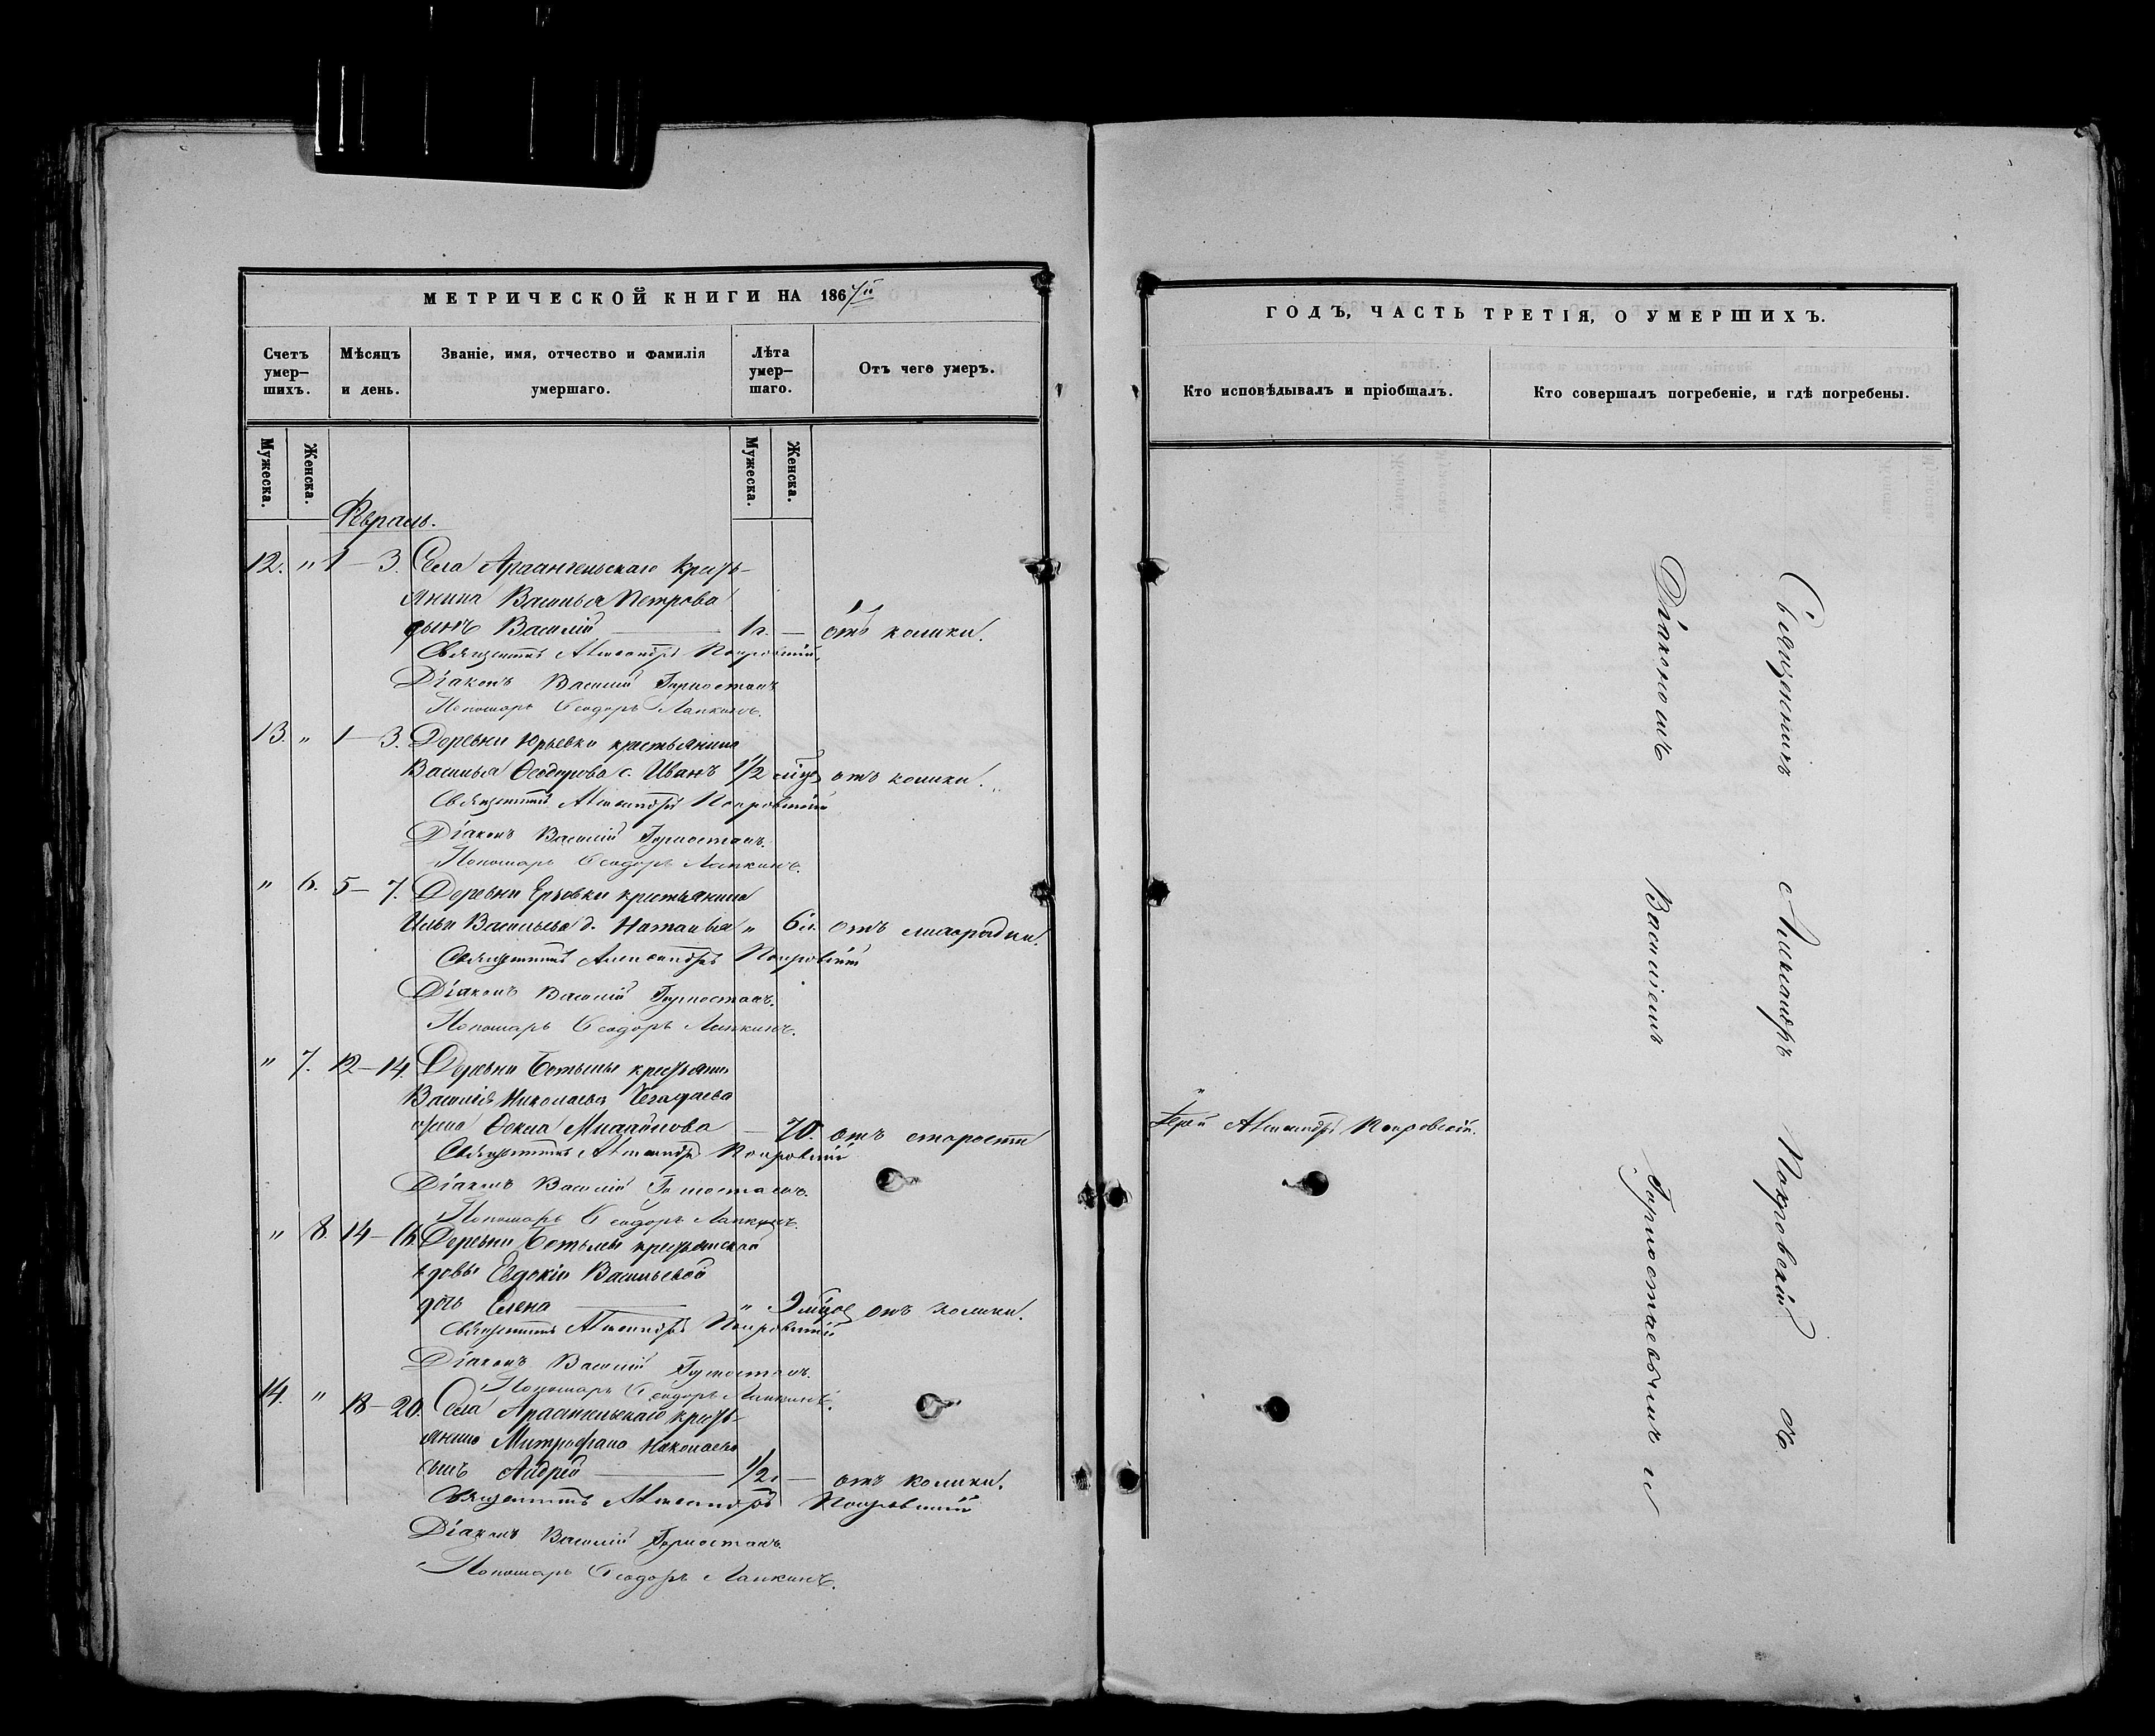 МЕТРИЧЕСКОЙ КНИГИ НА 1867й
Счетъ умер–шихъ.
Мѣсяцъ и день.
Званіе, имя, отчество и фамилія умершаго.
Лѣта умер–шаго.
Отъ чего умеръ.
Мужеска.
Женска.
Мужеска.
Женска.
12. " 1 — 3. Села Архангельскаго кресть-
янина Василья Петрова
сынъ Василій 1 г. — отъ колики.
Священникъ Александръ Покровскій
Діаконъ Василій Горностаевъ
Пономарь Ѳеодоръ Лапкинъ.
13. " 1 — 3. Деревни Юрьевки крестьянина
Василья Ѳеодорова с. Иванъ 1/2 отъ колики.
Священникъ Александръ Покровскій
Діаконъ Василій Горностаевъ.
Пономарь Ѳеодоръ Лапкинъ.
" 6. 5 — 7. Деревни крестьянина
Ильи Васильева д. Наталья " отъ лихорадки.
Священникъ Александръ Покровскій
Діаконъ Василій Горностаевъ.
Пономарь Ѳеодоръ Лапкинъ.
" 7. 12 — 14. Деревни
Василія Николаева
жена Ѳекла Михайлова — 70. отъ старости
Священникъ Александръ Покровскій
Діаконъ Василій Горностаевъ.
Пономарь Ѳеодоръ Лапкинъ.
" 8. 14 — 16. Деревни крестьянской
вдовы Евдокіи Васильевой
дочь Елена " отъ колики.
Священникъ Александръ Покровскій
Діаконъ Василій Горностаевъ.
Пономарь Ѳеодоръ Лапкинъ.
14. " 18 — 20. Села Архангельскаго кресть-
янина Митрофана Николаева
сынъ Андрей 1/2 — отъ колики.
Священникъ Александръ Покровскій
Діаконъ Василій Горностаевъ.
Пономарь Ѳеодоръ Лапкинъ.
ГОДЪ, ЧАСТЬ ТРЕТІЯ, О УМЕРШИХЪ.
Кто исповѣдывалъ и пріобщалъ.
Кто совершалъ погребеніе, и гдѣ погребены.
Іерей Александръ Покровскій.
Священникъ Александръ Покровскій съ
Діакономъ Василіемъ Горностаевымъ и